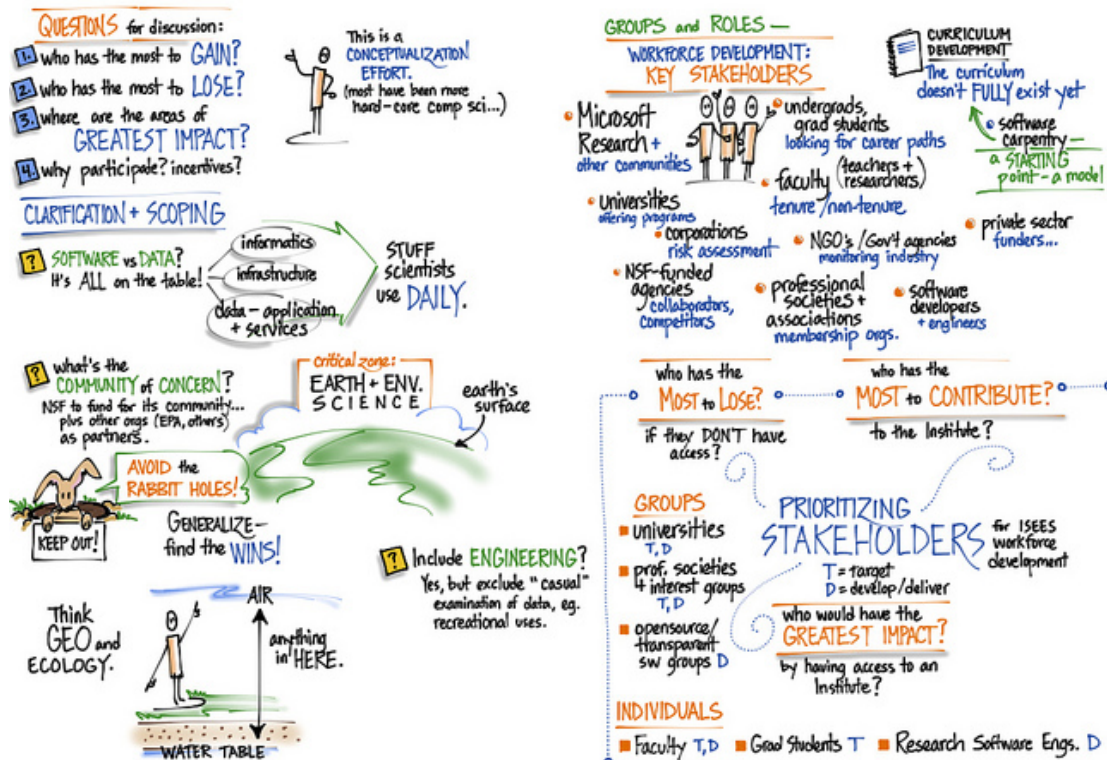 QUESTIONS for discussion:
1. who has the most to GAIN?
2. who has the most to LOSE?
3. where are the areas of
GREATEST IMPACT?
4. why participate? incentives?
This is a
CONCEPTUALIZATION
EFFORT.
(most have been more
hard-core comp sci...)
CLARIFICATION + SCOPING
? SOFTWARE vs DATA?
It's ALL on the table!
informatics
infrastructure
data-application
+ services
STUFF
scientists
use DAILY.
? what's the
COMMUNITY of CONCERN?
NSF to fund for its community...
plus other orgs (EPA, others)
as partners.
critical zone:
EARTH + ENV.
SCIENCE
earth's
surface
AVOID the
RABBIT HOLES!
KEEP OUT!
GENERALIZE—
find the WINS!
? Include ENGINEERING?
Yes, but exclude "casual"
examination of data, eg.
recreational uses.
Think
GEO and
ECOLOGY.
AIR
anything
in HERE.
WATER TABLE
GROUPS and ROLES—
WORKFORCE DEVELOPMENT:
KEY STAKEHOLDERS
CURRICULUM
DEVELOPMENT
The curriculum
doesn't FULLY exist yet
software
carpentry—
a STARTING
point-a model
Microsoft
Research +
other communities
undergrads,
grad students
looking for career paths
faculty (teachers +
researchers)
tenure/non-tenure
universities
offering programs
corporations
risk assessment
NGO's/Gov't agencies
monitoring industry
private sector
funders...
NSF-funded
agencies
collaborators,
competitors
professional
societies +
associations
membership orgs.
software
developers
+ engineers
who has the
MOST to LOSE?
if they DON'T have
access?
who has the
MOST to CONTRIBUTE?
to the Institute?
PRIORITIZING
STAKEHOLDERS
for ISEES
workforce
development
T = target
D = develop/deliver
GROUPS
universities
T, D
prof. societies
+ interest groups
T, D
opensource/
transparent
sw groups D
who would have the
GREATEST IMPACT?
by having access to an
Institute?
INDIVIDUALS
Faculty T, D
Grad Students T
Research Software Engs. D